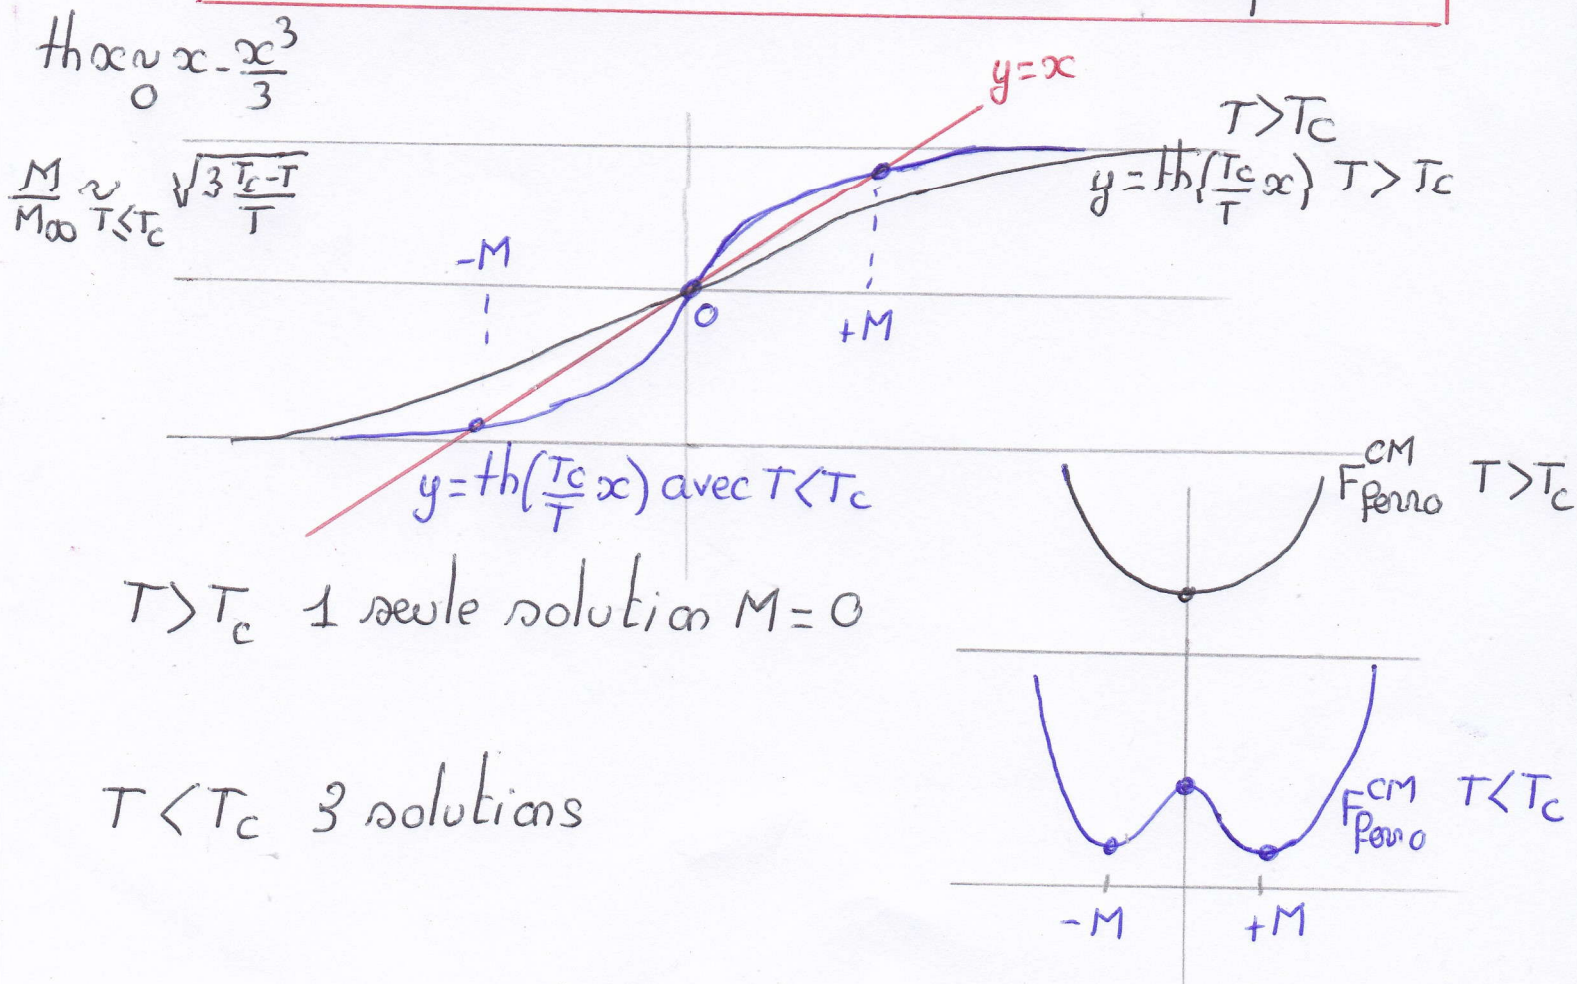 th x ~ x - x³/3
0
y=x
T>Tc
M/M∞ ~ √(3 (Tc-T)/T)
T≲Tc
y=th{Tc/T x} T>Tc
-M
0
+M
y=th(Tc/T x) avec T<Tc
F^CM ferro T>Tc
T>Tc 1 seule solution M=0
T<Tc 3 solutions
F^CM ferro T<Tc
-M +M